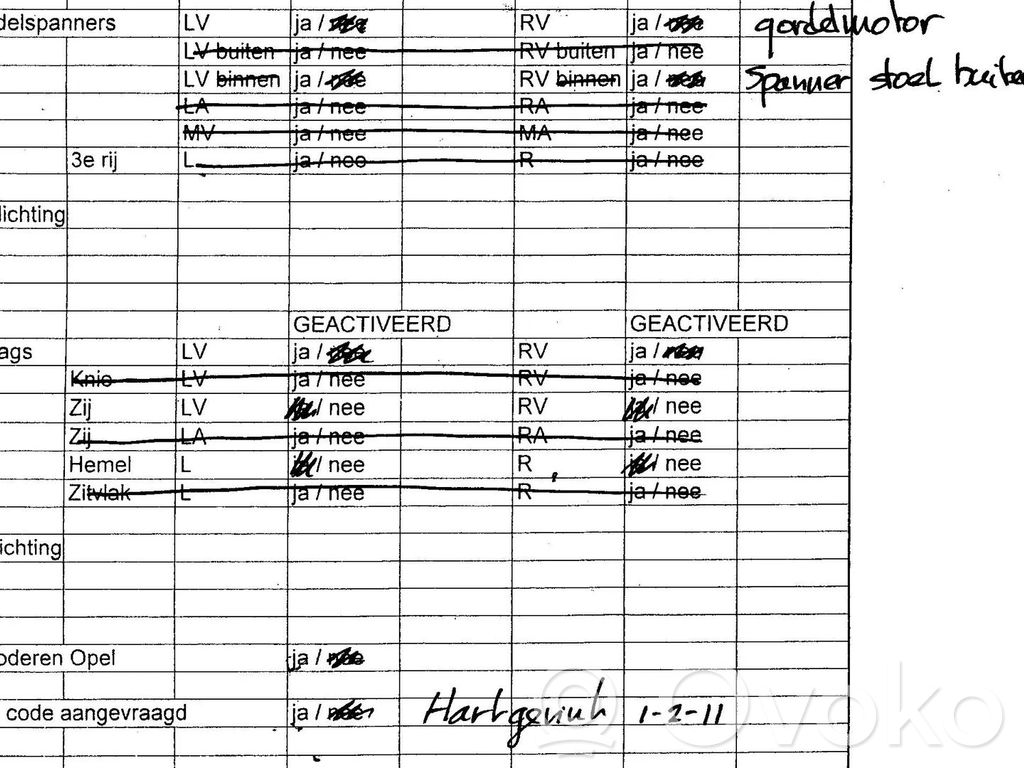 delspanners LV ja / nee RV ja / nee gordelmotor
LV buiten ja / nee RV buiten ja / nee
LV binnen ja / nee RV binnen ja / nee spanner stoel buiten
LA ja / nee RA ja / nee
MV ja / nee MA ja / nee
3e rij L ja / nee R ja / nee
lichting
GEACTIVEERD GEACTIVEERD
ags LV ja / nee RV ja / nee
Knie LV ja / nee RV ja / nee
Zij LV ja / nee RV ja / nee
Zij LA ja / nee RA ja / nee
Hemel L ja / nee R ja / nee
Zitvlak L ja / nee R ja / nee
ichting
oderen Opel ja / nee
code aangevraagd ja / nee 1-2-11
Ovoko